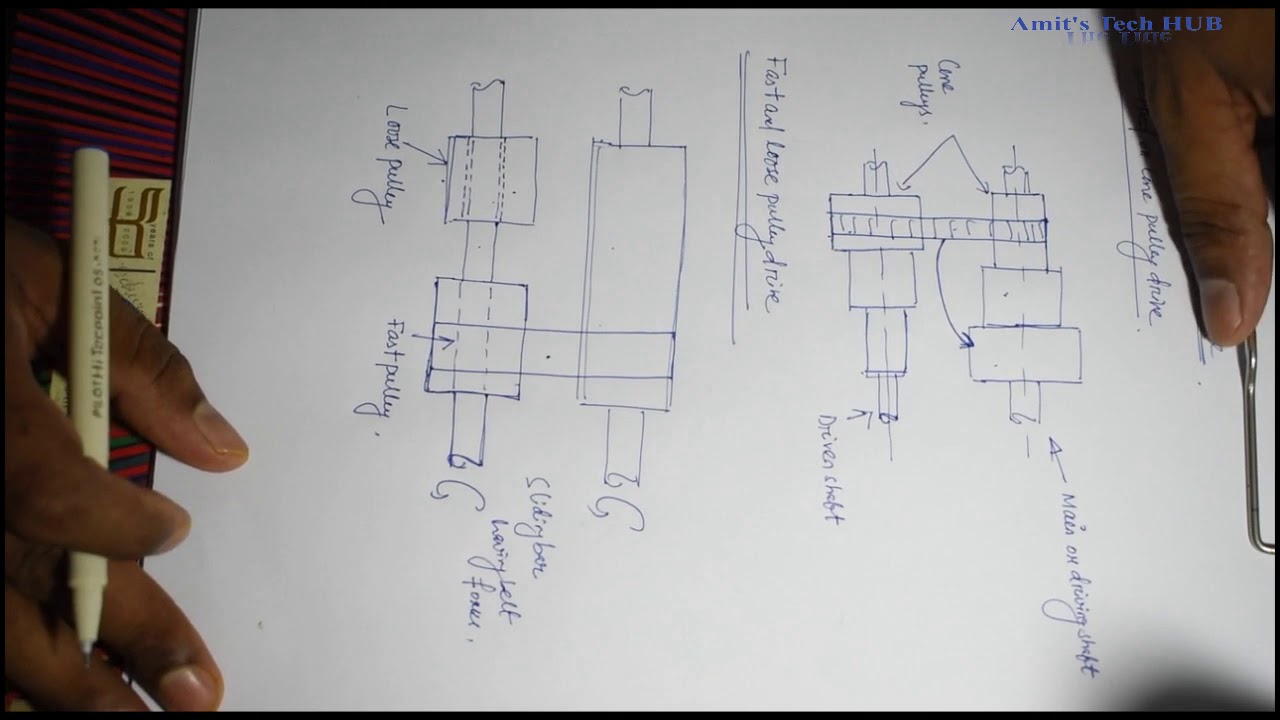 Amit's Tech HUB
cone pulley drive.
Cone
pulleys.
Main or driving shaft
Driven shaft
Fast and loose pulley drive
Loose pulley
Fast pulley.
Sliding bar
having belt
PILOT Hi-Tecpoint 05
years of